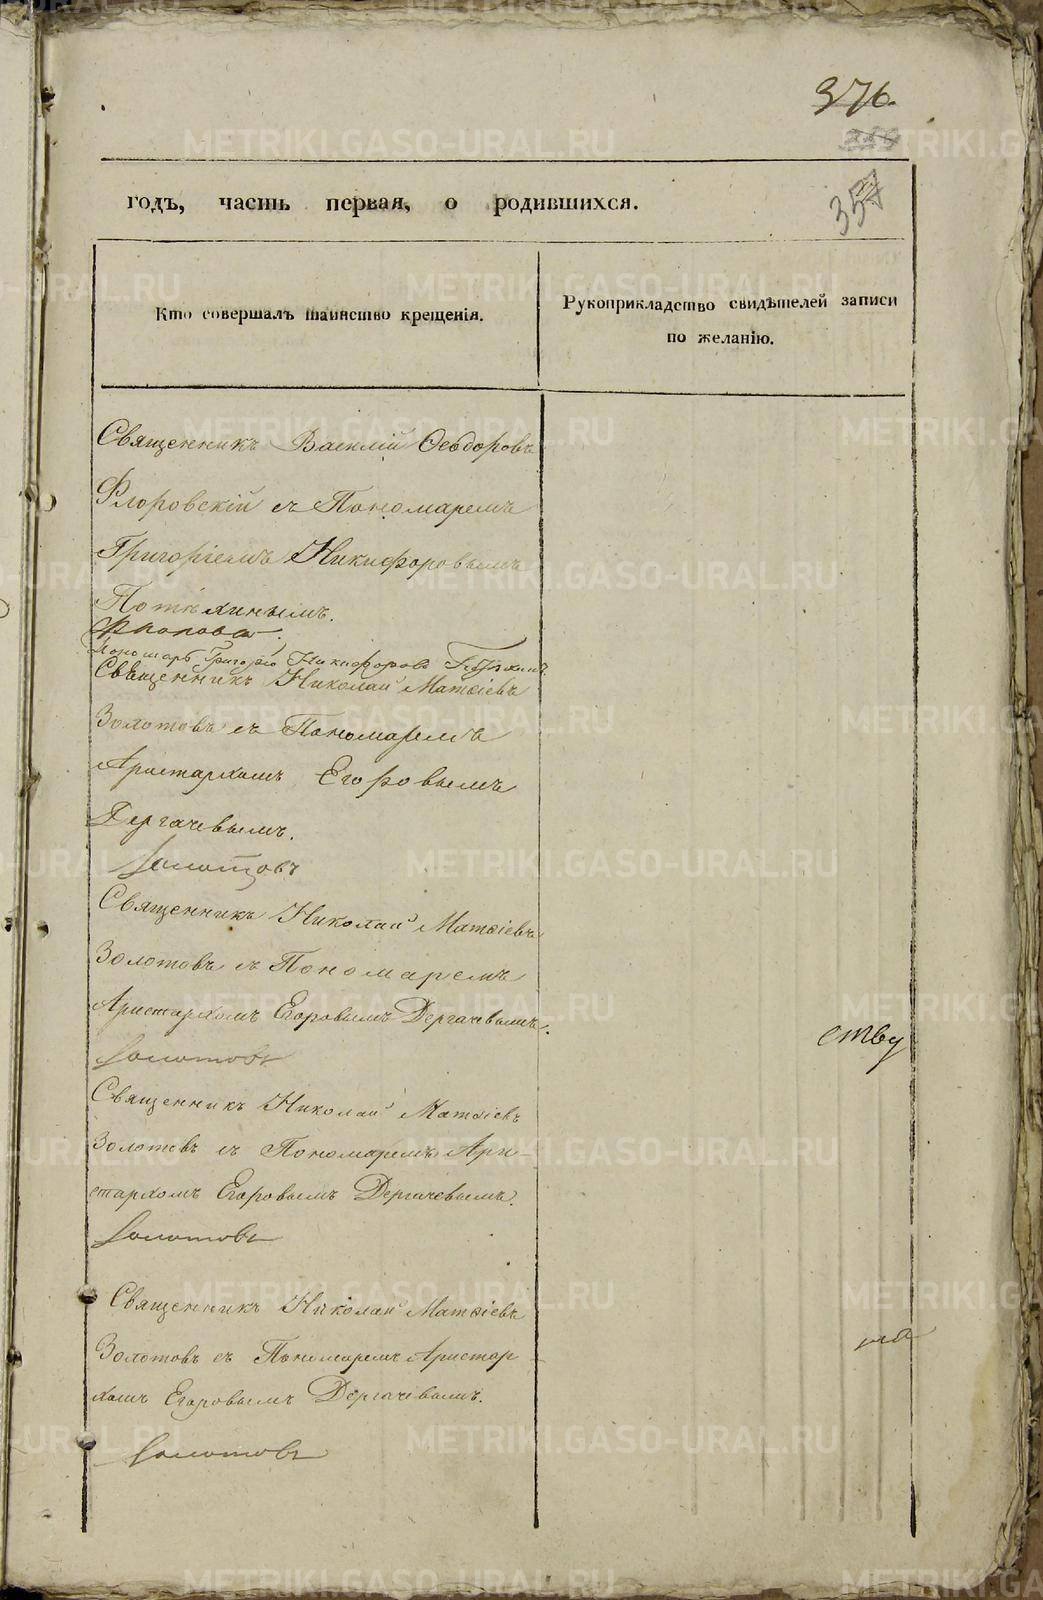 376.
357
годъ, часть первая, о родившихся.
Кто совершалъ таинство крещенія.
Рукоприкладство свидѣтелей записи
по желанію.
Священникъ Василій Ѳеодоровъ
Флоровскій съ Пономаремъ
Григоріемъ Никифоровымъ
Потѣхинымъ.
Пономарь Григорій Никифоровъ Потѣхинъ
Священникъ Николай Матѳіевъ
Золотовъ съ Пономаремъ
Аристархомъ Егоровымъ
Дергачевымъ.
Золотовъ
Священникъ Николай Матѳіевъ
Золотовъ съ Пономаремъ
Аристархомъ Егоровымъ Дергачевымъ.
Золотовъ
ству
Священникъ Николай Матѳіевъ
Золотовъ съ Пономаремъ Ари-
стархомъ Егоровымъ Дергачевымъ.
Золотовъ
Священникъ Николай Матѳіевъ
Золотовъ съ Пономаремъ Аристар-
хомъ Егоровымъ Дергачевымъ.
Золотовъ
METRIKI.GASO-URAL.RU